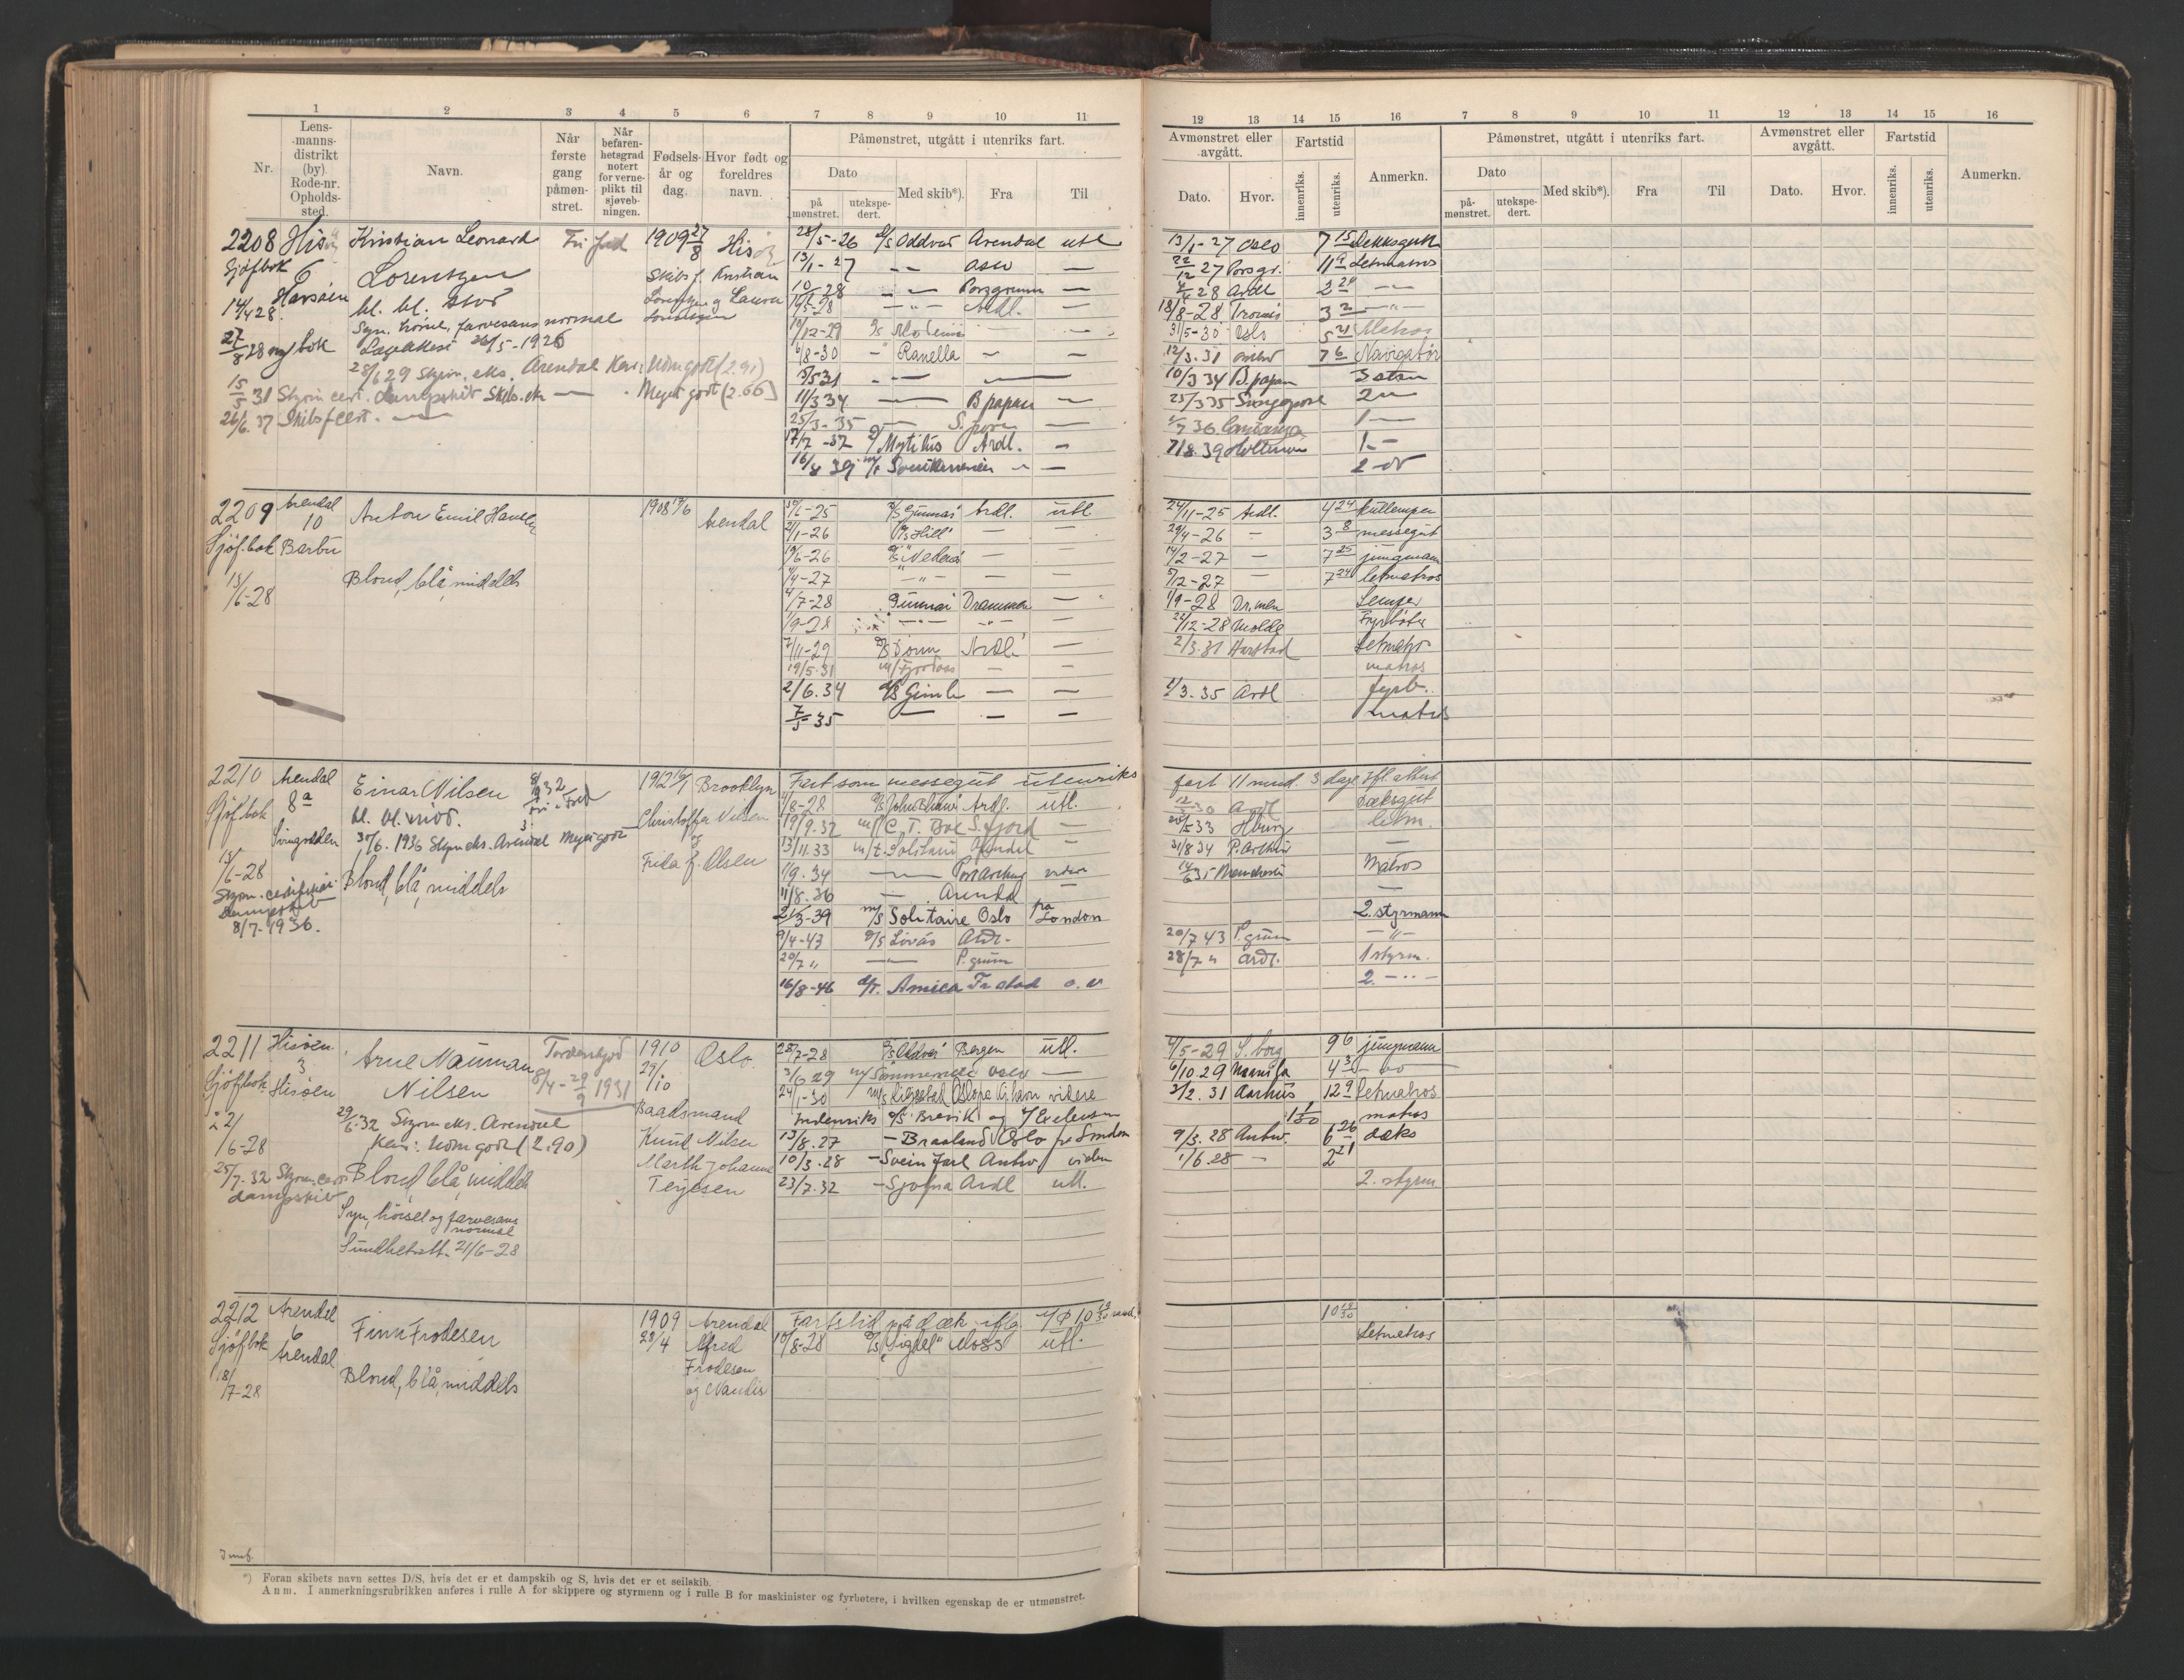 1 2 3 4 5 6 7 8 9 10 11
Nr.
Lens-
manns-
distrikt
(by)
Rode-nr.
Opholds-
sted.
Navn.
Når
første
gang
påmøn-
stret.
Når
befaren-
hetsgrad
notert
for verne-
plikt til
sjøveb-
ningen.
Fødsels-
år og
dag.
Hvor født og
foreldres
navn.
Påmønstret, utgått i utenriks fart.
Dato
på
mønstret.
utekspe-
dert.
Med skib*).
Fra
Til
12 13 14 15 16 7 8 9 10 11 12 13 14 15 16
Avmønstret eller
avgått.
Dato.
Hvor.
Fartstid
innenriks.
utenriks.
Anmerkn.
Påmønstret, utgått i utenriks fart.
Dato
på-
mønstret.
utekspe-
dert.
Med skib*).
Fra
Til
Avmønstret eller
avgått.
Dato.
Hvor.
Fartstid
innenriks.
utenriks.
Anmerkn.
2208
Sjøfbok
14/4 28
27/8 28 ny bok
6
Kristian Leonard
Lorentzen
bl. bl.
Syn, hørsel, farvesans normal
Lægeattest 26/5-1926
28/6 29 Styrm. eks. Arendal Kar: Nomgodt (2.91)
15/5 31 Styrm cert. dampskib Skibs. eks — Meget godt (2.66)
26/6. 37 Skibsf cert.
1909 27/8
Skibsf. Kristian
Lorentzen og Laura
Lorentzen
28/5-26 D/S Oddvar Arendal utl
13/1-27 — Oslo —
10/1-28 — Porsgrunn —
16/5-28 — Ardl. —
6/8-30 — Ranella — —
13/5 31 —
11/3 34 — B papan —
25/3-35 — S.pore —
17/7-37 Mytilus Ardl. —
16/8 39 m/s
13/1-27 Oslo 7 15 Dekksgutt
22/12 27 Porsgr. 11 9 Letmatros
28 Ardl 2 24 —
18/8-28 Tromsø 3 2 — " —
31/5-30 Oslo 5 21 Matros
12/3. 31 7 6 Navigatør
10/3 34 B.papan 3 stm
25/3 35 Singapore 2 —
36 1 —
7/8. 39 1. —
2209
Sjøf.bok
15/6-28
Arendal
10
Barbu
Anton Emil Hansen
Blond, blå, middels
1908 17/6
Arendal
D/S Gunnar Ardl. utl
2/1-26 D/S Hild — —
19/6-26 D/S Nedenes — —
4/4-27 — " — — —
4/7-28 Gunnar Drammen —
1/9-28 — " — — " —
7/11-29 D/S Jorun Ardl. —
19/5. 31 m/ Fjordaas — —
2/6. 34 D/S Gimle — —
7/5-35 — — —
24/11-25 Ardl. 4 24 kullemper
29/4-26 — 3 8 messegut
14/2-27 — 7 25 jungmann
5/12-27 — 7 24 letmatros
1/9-28 Dr.men Lemper
22/12-28 Molde Fyrbøter
2/3. 31 Harstad Letmatr
matros
1/3. 35 Ardl fyrb.
matros
2210
Sjøf.bok
15/6-28
Arendal
8a
Einar Nilsen
bl. bl. mid.
30/6. 1936 Styrm eks. Arendal Meget godt
Blond, blå, middels
Styrm. certifikat
Dampskib
8/7-1936.
1912 16/1 Brooklyn
Christoffer Nilsen
og
Frida f. Olsen
Fart som messegut utenriks
4/8-28 Ardl. utl.
19/9. 32 m/ C. T. Boe S. fjord —
13/11. 33 m/t. Solitaire Arendal —
1/9. 34 — Port Arthur videre
11/8. 36 — Arendal —
21/3-39 m/s Solitaire Oslo pa London
9/4-43 D/S Lovås Ardl.
20/7 " — P. grunn
16/8-46 d/t. Amica Frstad o. v
fart 11 mnd. 3 dage ifl. attest
Ardl Dæksgut
20/5 33 Hburg letm.
31/8 34 P. Arthur —
Matros
—
2. styrmann
20/7 43 P.grunn — " —
28/7 " Ardl. 1 styrm.
2. — " —
2211
Sjøf.bok
22/6-28
Hisøen
3
Hisøen
Arne Nauman
Nilsen
29/6. 32 Styrm eks. Arendal
Kar: Nomgodt (2.90)
25/7. 32 Styrm. cert
dampskib
Blond, blå, middels
Syn, hørsel og farvesans
normal
Sundhetsatt. 21/6-28
Tordenskjold
8/4-29/9 1931
1910
29/10
Oslo.
Baadsmand
Knud Nilsen
Marth Johanne
Terjesen
28/7-28 D/S Oddvar Bergen utl.
3/6 29 m/ Oslo —
24/1-30 m/s videre
Indenriks D/S Brevik og
13/8. 27 — Braaland Oslo pa London
10/3. 28 — Svein Jarl Antw. viden
23/7. 32 — Sjofna Ardl utl.
4/5-29 S. borg 9 6 jungmann
6/10. 29 4 3 — do
2/2. 31 Aarhus 12 9 letmatros
matros
9/3. 28 Antw. 6 26 dæks
1/6. 28 — 2 21
2. styrm
2212
Sjøf.bok
18/7-28
Arendal
6
Arendal
Finn Frodesen
Blond, blå, middels
1909
28/4
Arendal
Alfred
Frodesen
og Nandis
Fartstid på dæk iflg. 10 19/30 mnd.
10/8-28 D/S "Sigdal" Moss utl.
10 19/30
Letmatros
*) Foran skibets navn settes D/S, hvis det er et dampskib og S, hvis det er et seilskib.
Anm. I anmerkningsrubrikken anføres i rulle A for skippere og styrmenn og i rulle B for maskinister og fyrbøtere, i hvilken egenskap de er utmønstret.